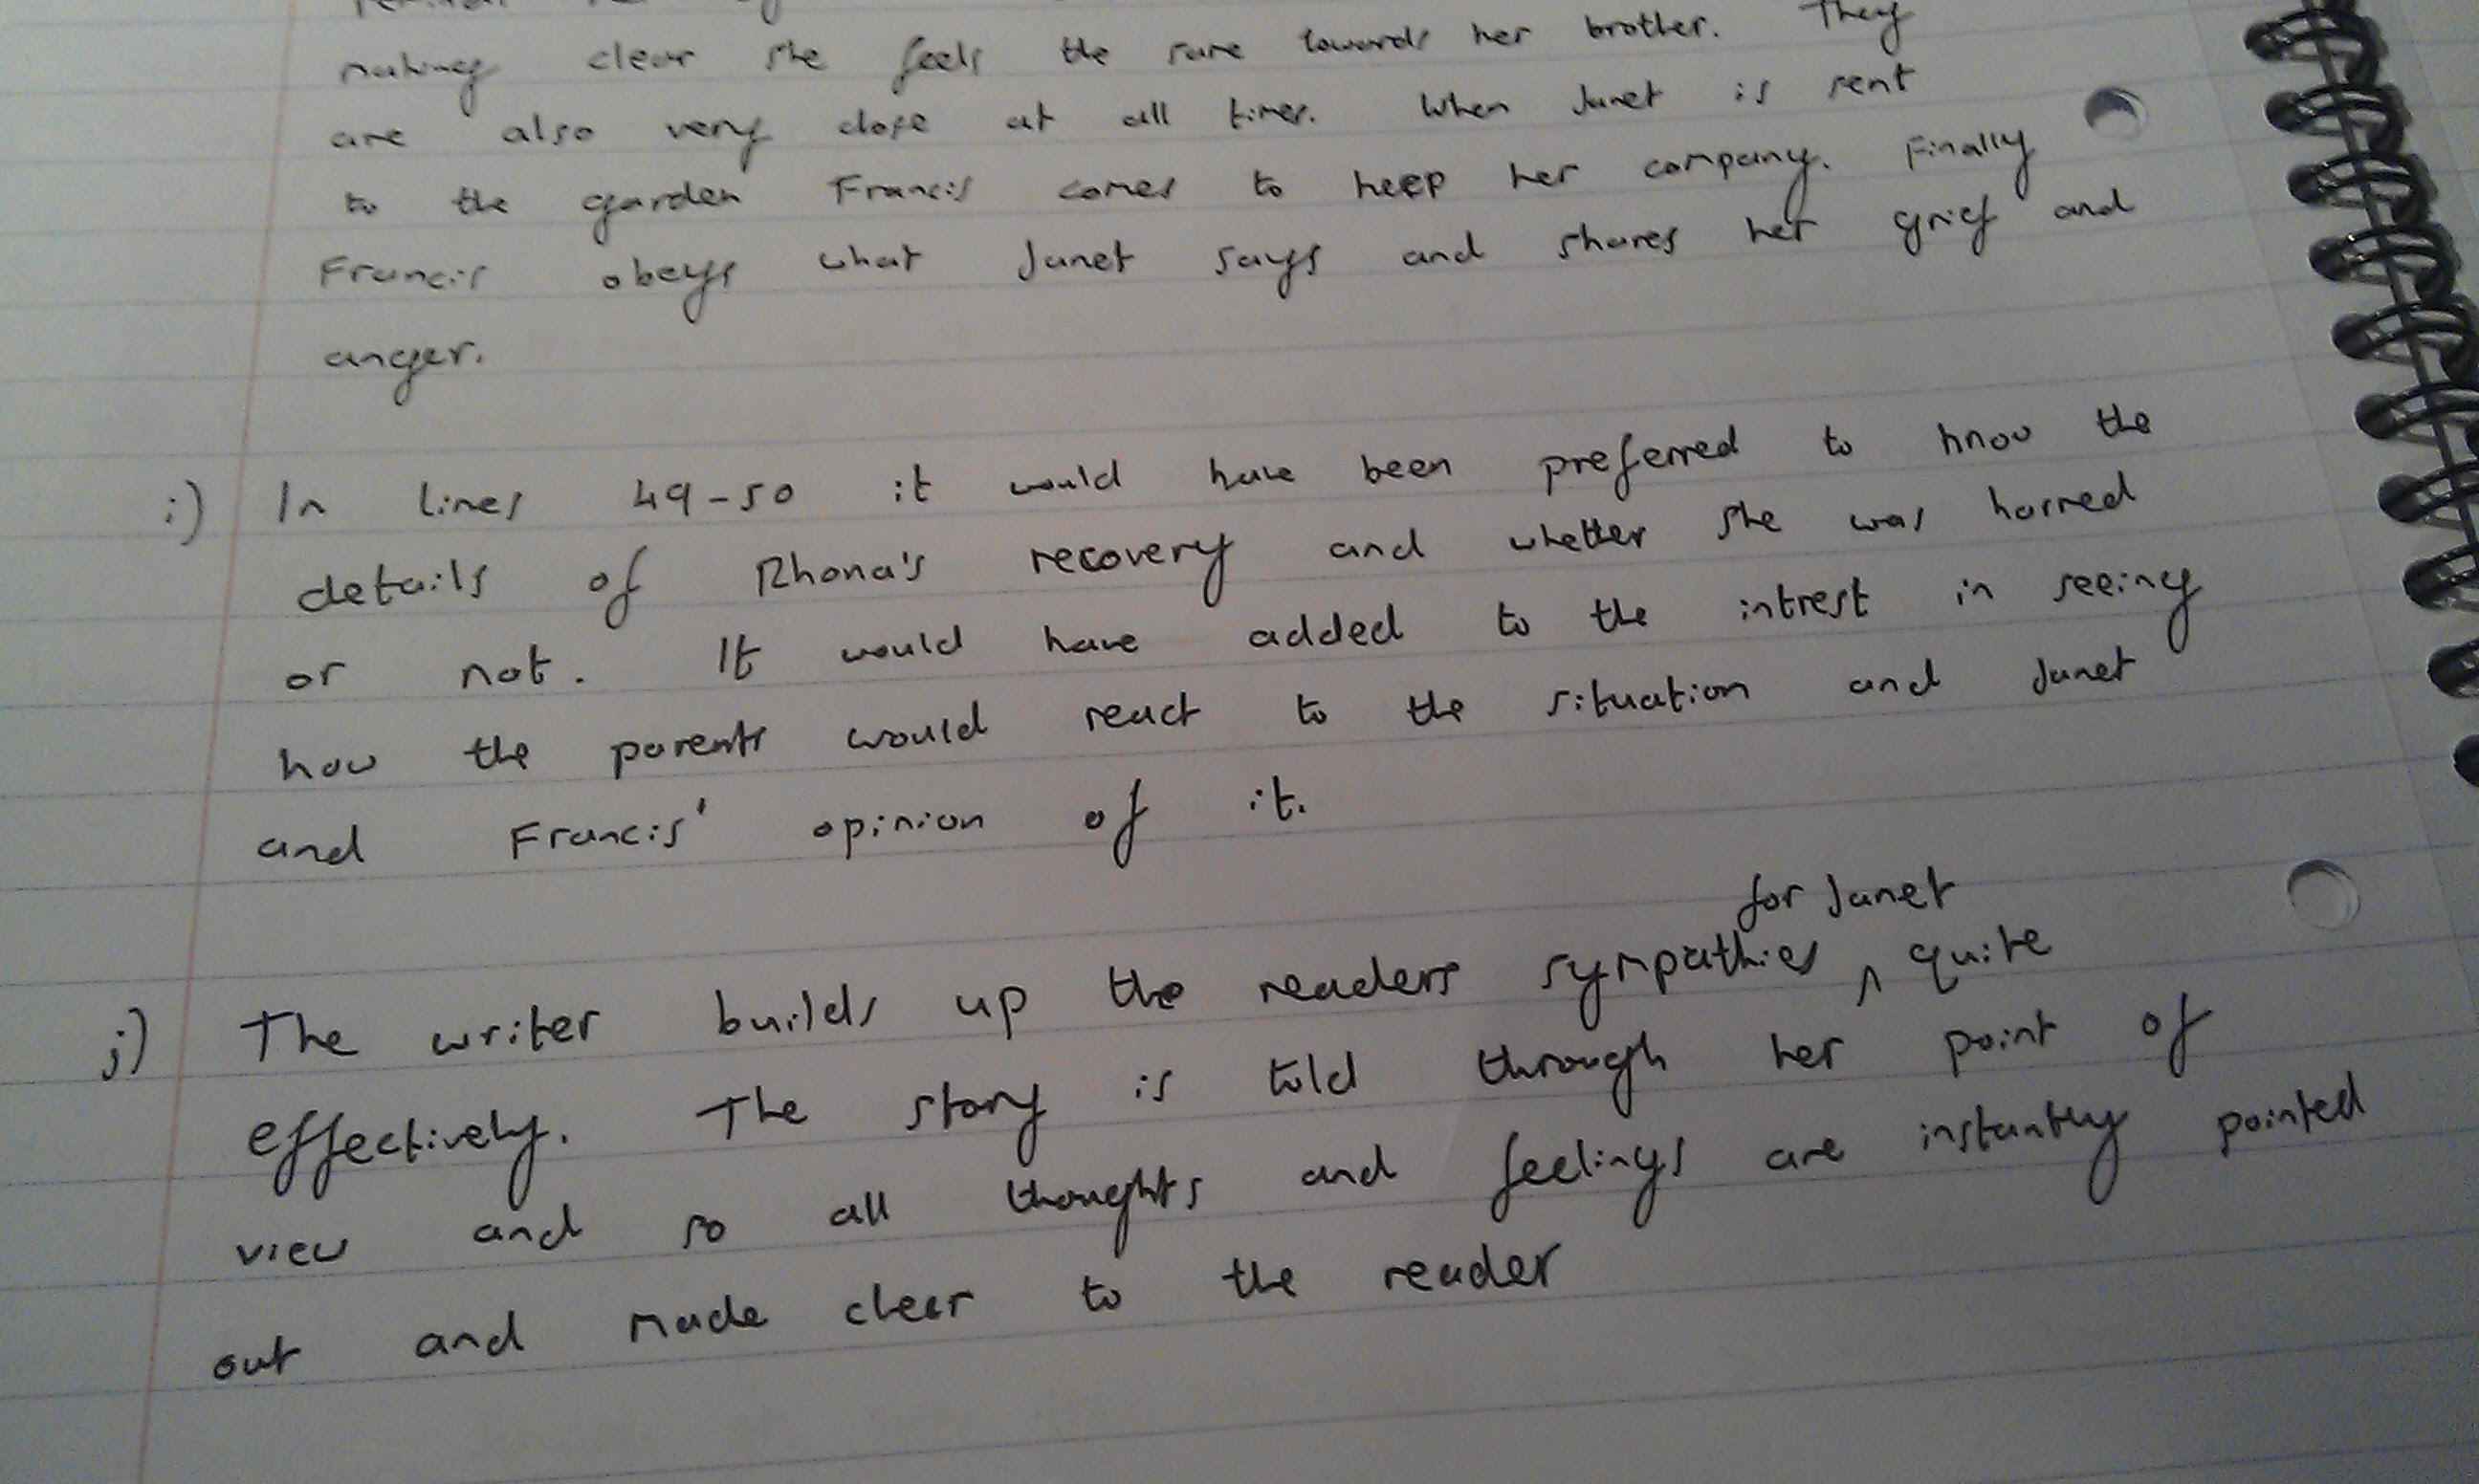 making clear she feels the same towards her brother. They
are also very close at all times. When Janet is sent
to the garden Francis comes to keep her company. Finally
Francis obeys what Janet says and shares her grief and
anger.
i) In lines 49-50 it would have been preferred to know the
details of Rhona's recovery and whether she was harmed
or not. It would have added to the intrest in seeing
how the parents would react to the situation and Janet
and Francis' opinion of it.
for Janet
j) The writer builds up the readers sympathies ^ quite
effectively. The story is told through her point of
view and so all thoughts and feelings are instantly pointed
out and made clear to the reader